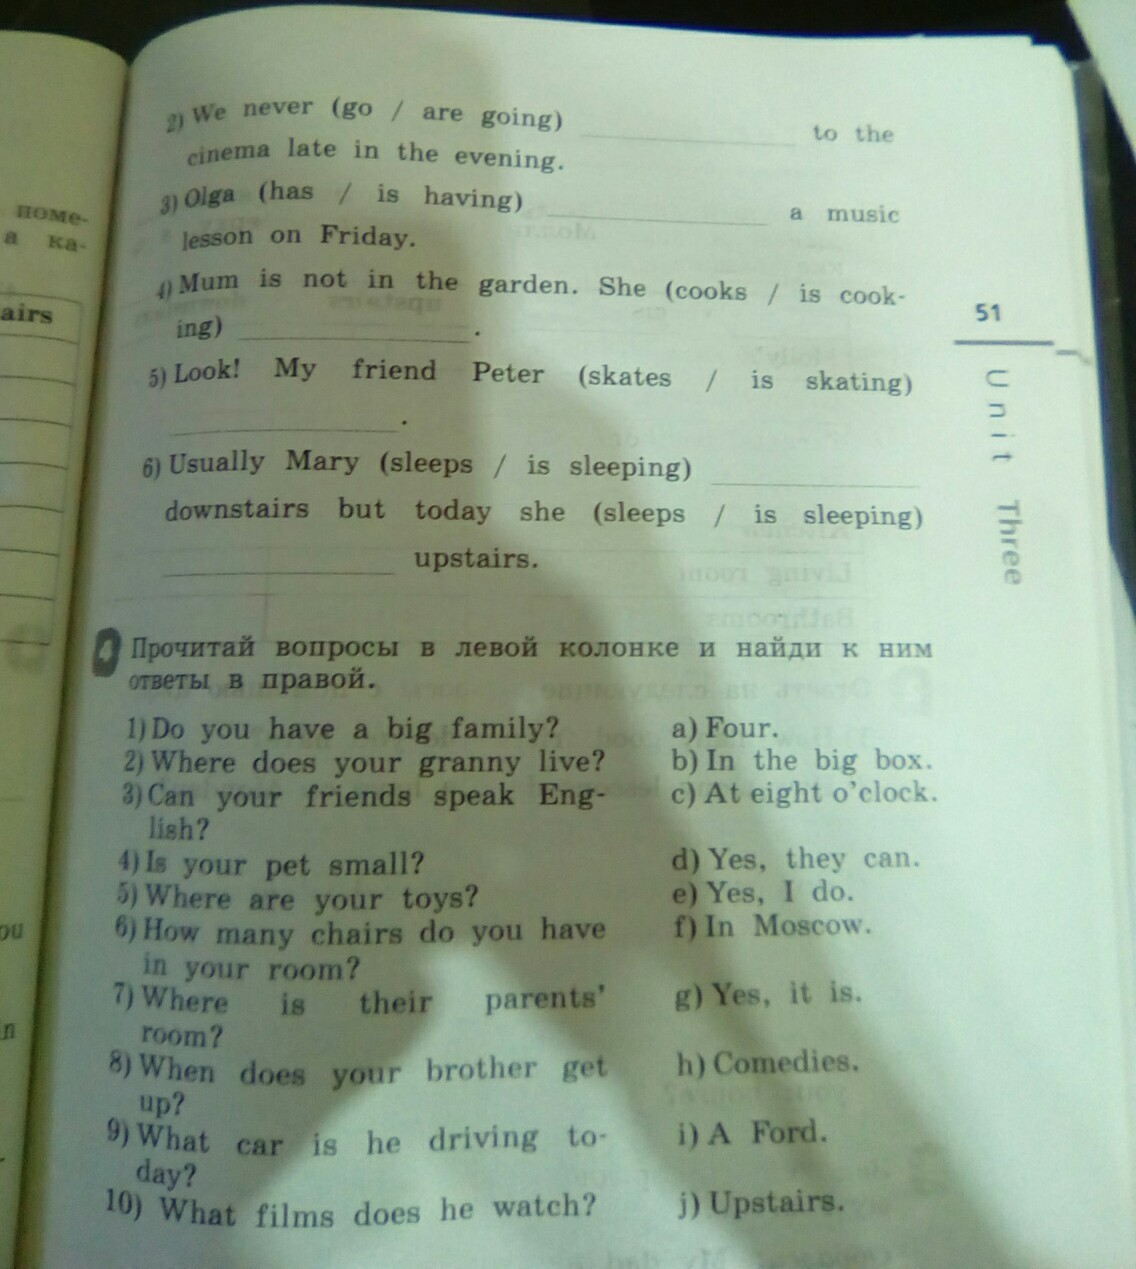 2) We never (go / are going) ____ to the
cinema late in the evening.
3) Olga (has / is having) ____ a music
lesson on Friday.
4) Mum is not in the garden. She (cooks / is cook-
ing) ____.
5) Look! My friend Peter (skates / is skating)
____.
6) Usually Mary (sleeps / is sleeping) ____
downstairs but today she (sleeps / is sleeping)
____ upstairs.
4 Прочитай вопросы в левой колонке и найди к ним
ответы в правой.
1) Do you have a big family?
2) Where does your granny live?
3) Can your friends speak Eng-
lish?
4) Is your pet small?
5) Where are your toys?
6) How many chairs do you have
in your room?
7) Where is their parents'
room?
8) When does your brother get
up?
9) What car is he driving to-
day?
10) What films does he watch?
a) Four.
b) In the big box.
c) At eight o'clock.
d) Yes, they can.
e) Yes, I do.
f) In Moscow.
g) Yes, it is.
h) Comedies.
i) A Ford.
j) Upstairs.
51
Unit Three
поме-
а ка-
airs
ou
n